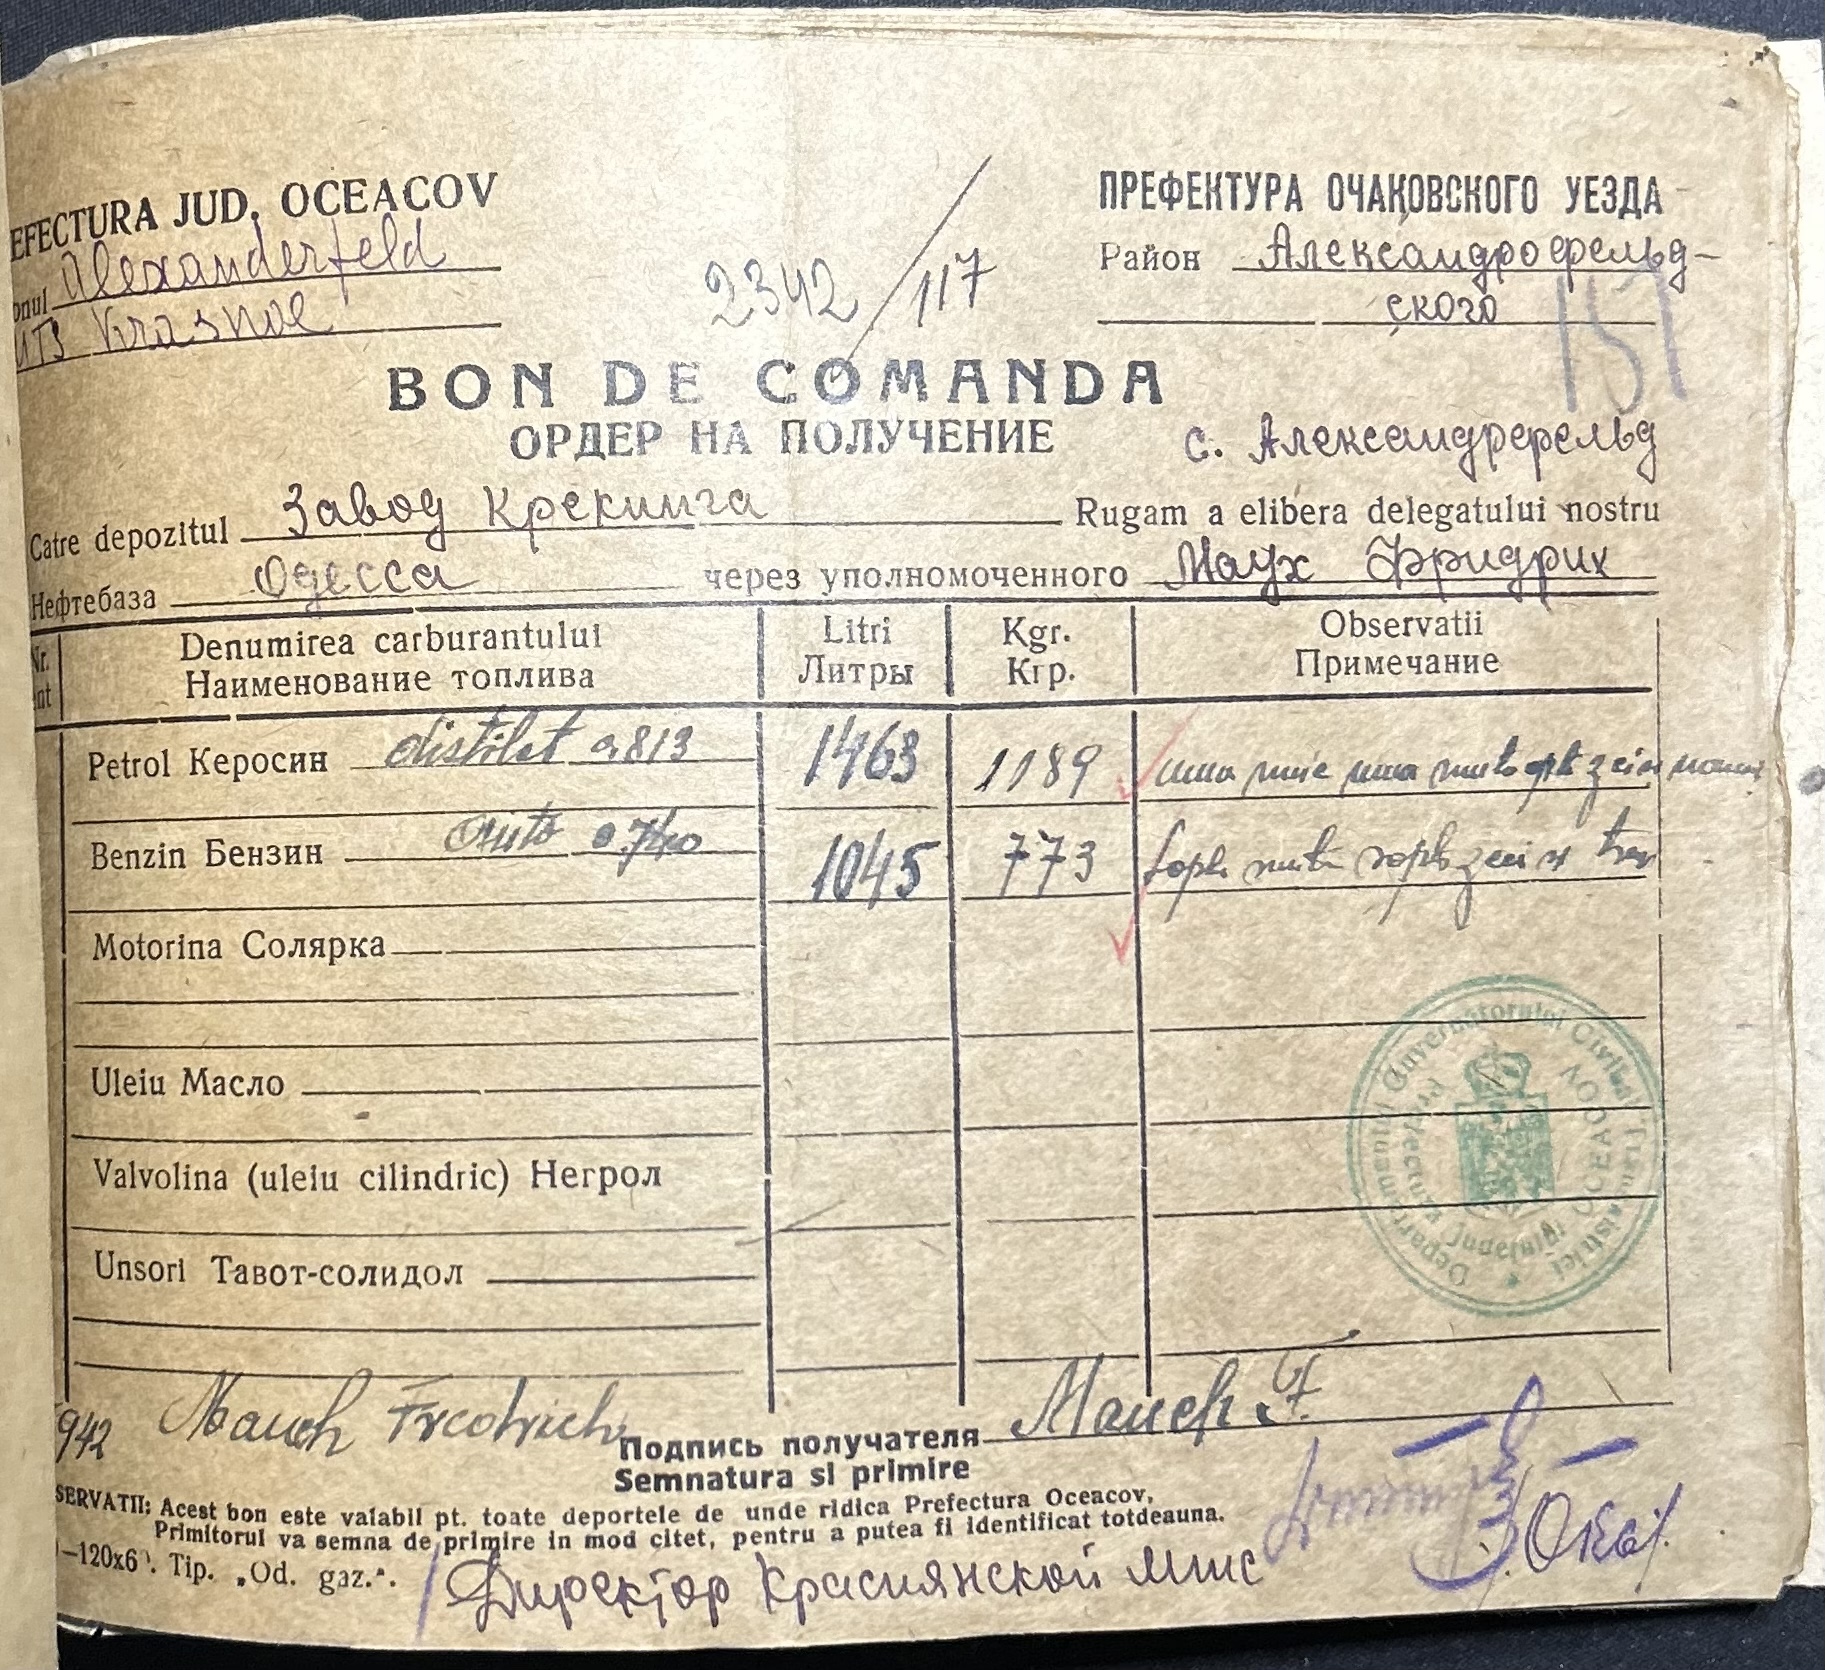 EFECTURA JUD. OCEACOV
ПРЕФЕКТУРА ОЧАКОВСКОГО УЕЗДА
onul Alexanderfeld
2342/117
Район Александрофельд-
ского
MTS Krasnoe
157
BON DE COMANDA
ОРДЕР НА ПОЛУЧЕНИЕ
с. Александерфельд
Catre depozitul Завод Крекинга Rugam a elibera delegatului nostru
Нефтебаза Одесса через уполномоченного Маух Фридрих
Nr. Denumirea carburantului Litri Kgr. Observatii
Наименование топлива Литры Кгр. Примечание
Petrol Керосин distilet 0,813 1463 1189 una mie una suta opt zeci noua
Benzin Бензин auto 0.740 1045 773 sapte sute sapte zeci si trei
Motorina Солярка
Uleiu Масло
Valvolina (uleiu cilindric) Негрол
Unsori Тавот-солидол
Departamentul Guvernatorului Civil al Transnistriei
Prefectura Judeţului OCEACOV
942 Mauch Fredrich Подпись получателя Mauch F.
Semnatura si primire
SERVATII: Acest bon este valabil pt. toate deportele de unde ridica Prefectura Oceacov,
Primitorul va semna de primire in mod citet, pentru a putea fi identificat totdeauna.
–120x6 . Tip. „Od. gaz.“.
Директор Краснянской мтс